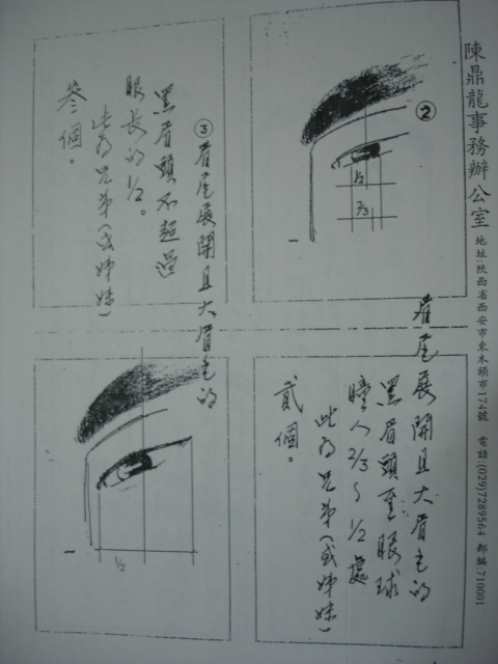 陳鼎龍事務辦公室 地址:陝西省西安市東木頭市174號 電話:(029)7289564 郵編:710001
②
1/2
2/3
眉尾展開且大眉毛的
黑眉頭至眼球
瞳人2/3～1/2處
此為兄弟(或姊妹)
貳個。
③眉尾展開且大眉毛的
黑眉頭不超過
眼長的1/2。
此為兄弟(或姊妹)
叁個。
1/2